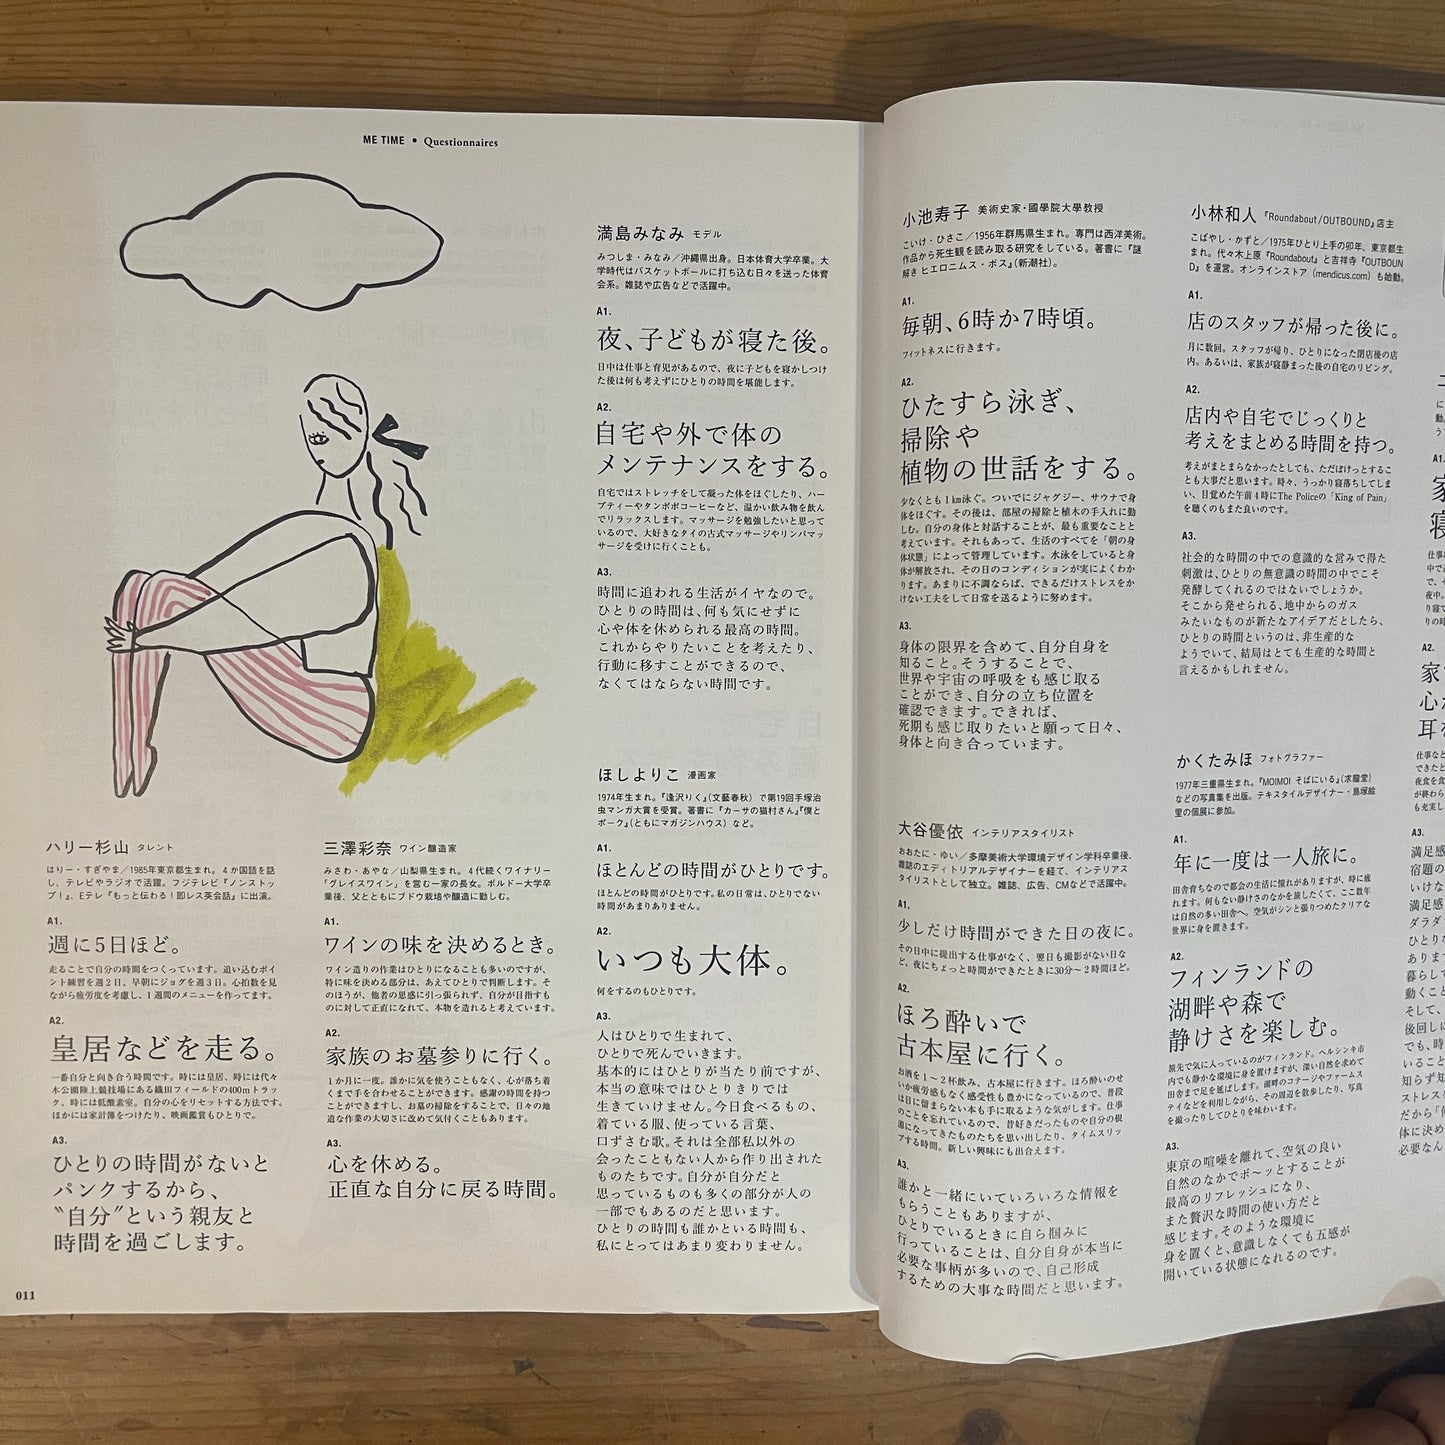 ME TIME • Questionnaires
ハリー杉山 タレント
はりー・すぎやま／1985年東京都生まれ。4か国語を話
し、テレビやラジオで活躍。フジテレビ『ノンストッ
プ！』、Eテレ『もっと伝わる！即レス英会話』に出演。
A1.
週に5日ほど。
走ることで自分の時間をつくっています。追い込むポイ
ント練習を週2日、早朝にジョグを週3日。心拍数を見
ながら疲労度を考慮し、1週間のメニューを作ってます。
A2.
皇居などを走る。
一番自分と向き合う時間です。時には皇居、時には代々
木公園陸上競技場にある織田フィールドの400mトラッ
ク、時には低酸素室。自分の心をリセットする方法です。
ほかには家計簿をつけたり、映画鑑賞もひとりで。
A3.
ひとりの時間がないと
パンクするから、
〝自分〟という親友と
時間を過ごします。
011
三澤彩奈 ワイン醸造家
みさわ・あやな／山梨県生まれ。4代続くワイナリー
「グレイスワイン」を営む一家の長女。ボルドー大学卒
業後、父とともにブドウ栽培や醸造に勤しむ。
A1.
ワインの味を決めるとき。
ワイン造りの作業はひとりになることも多いのですが、
特に味を決める部分は、あえてひとりで判断します。そ
のほうが、他者の思惑に引っ張られず、自分が目指すも
のに対して正直になれて、本物を造れると考えています。
A2.
家族のお墓参りに行く。
1か月に一度。誰かに気を使うこともなく、心が落ち着
くまで手を合わせることができます。感謝の時間を持つ
ことができますし、お墓の掃除をすることで、日々の地
道な作業の大切さに改めて気付くこともあります。
A3.
心を休める。
正直な自分に戻る時間。
満島みなみ モデル
みつしま・みなみ／沖縄県出身。日本体育大学卒業。大
学時代はバスケットボールに打ち込む日々を送った体育
会系。雑誌や広告などで活躍中。
A1.
夜、子どもが寝た後。
日中は仕事と育児があるので、夜に子どもを寝かしつけ
た後は何も考えずにひとりの時間を堪能します。
A2.
自宅や外で体の
メンテナンスをする。
自宅ではストレッチをして凝った体をほぐしたり、ハー
ブティーやタンポポコーヒーなど、温かい飲み物を飲ん
でリラックスします。マッサージを勉強したいと思って
いるので、大好きなタイの古式マッサージやリンパマッ
サージを受けに行くことも。
A3.
時間に追われる生活がイヤなので。
ひとりの時間は、何も気にせずに
心や体を休められる最高の時間。
これからやりたいことを考えたり、
行動に移すことができるので、
なくてはならない時間です。
ほしよりこ 漫画家
1974年生まれ。『逢沢りく』（文藝春秋）で第19回手塚治
虫マンガ大賞を受賞。著書に『カーサの猫村さん』『僕と
ポーク』（ともにマガジンハウス）など。
A1.
ほとんどの時間がひとりです。
ほとんどの時間がひとりです。私の日常は、ひとりでない
時間があまりありません。
A2.
いつも大体。
何をするのもひとりです。
A3.
人はひとりで生まれて、
ひとりで死んでいきます。
基本的にはひとりが当たり前ですが、
本当の意味ではひとりきりでは
生きていけません。今日食べるもの、
着ている服、使っている言葉、
口ずさむ歌。それは全部私以外の
会ったこともない人から作り出された
ものたちです。自分が自分だと
思っているものも多くの部分が人の
一部でもあるのだと思います。
ひとりの時間も誰かといる時間も、
私にとってはあまり変わりません。
小池寿子 美術史家・國學院大學教授
こいけ・ひさこ／1956年群馬県生まれ。専門は西洋美術。
作品から死生観を読み取る研究をしている。著書に『謎
解き ヒエロニムス・ボス』（新潮社）。
A1.
毎朝、6時か7時頃。
フィットネスに行きます。
A2.
ひたすら泳ぎ、
掃除や
植物の世話をする。
少なくとも1km泳ぐ。ついでにジャグジー、サウナで身
体をほぐす。その後は、部屋の掃除と植木の手入れに勤
しむ。自分の身体と対話することが、最も重要なことと
考えています。それもあって、生活のすべてを「朝の身
体状態」によって管理しています。水泳をしていると身
体が解放され、その日のコンディションが実によくわか
ります。あまりに不調ならば、できるだけストレスをか
けない工夫をして日常を送るように努めます。
A3.
身体の限界を含めて、自分自身を
知ること。そうすることで、
世界や宇宙の呼吸をも感じ取る
ことができ、自分の立ち位置を
確認できます。できれば、
死期も感じ取りたいと願って日々、
身体と向き合っています。
大谷優依 インテリアスタイリスト
おおたに・ゆい／多摩美術大学環境デザイン学科卒業後、
雑誌のエディトリアルデザイナーを経て、インテリアス
タイリストとして独立。雑誌、広告、CMなどで活躍中。
A1.
少しだけ時間ができた日の夜に。
その日中に提出する仕事がなく、翌日も撮影がない日な
ど、夜にちょっと時間ができたときに30分〜2時間ほど。
A2.
ほろ酔いで
古本屋に行く。
お酒を1〜2杯飲み、古本屋に行きます。ほろ酔いのせ
いか疲労感もなく感受性も豊かになっているので、普段
は目に留まらない本も手に取るような気がします。仕事
のことを忘れているので、昔好きだったものや自分の根
源になってきたものたちを思い出したり、タイムスリッ
プする時間。新しい興味にも出合えます。
A3.
誰かと一緒にいていろいろな情報を
もらうこともありますが、
ひとりでいるときに自ら掴みに
行っていることは、自分自身が本当に
必要な事柄が多いので、自己形成
するための大事な時間だと思います。
小林和人 『Roundabout/OUTBOUND』店主
こばやし・かずと／1975年ひとり上手の卯年、東京都生
まれ。代々木上原『Roundabout』と吉祥寺『OUTBOUN
D』を運営。オンラインストア（mendicus.com）も始動。
A1.
店のスタッフが帰った後に。
月に数回。スタッフが帰り、ひとりになった閉店後の店
内。あるいは、家族が寝静まった後の自宅のリビング。
A2.
店内や自宅でじっくりと
考えをまとめる時間を持つ。
考えがまとまらなかったとしても、ただぼけっとするこ
とも大事だと思います。時々、うっかり寝落ちしてしま
い、目覚めた午前4時にThe Policeの「King of Pain」
を聴くのもまた良いのです。
A3.
社会的な時間の中での意識的な営みで得た
刺激は、ひとりの無意識の時間の中でこそ
発酵してくれるのではないでしょうか。
そこから発せられる、地中からのガス
みたいなものが新たなアイデアだとしたら、
ひとりの時間というのは、非生産的な
ようでいて、結局はとても生産的な時間と
言えるかもしれません。
かくたみほ フォトグラファー
1977年三重県生まれ。『MOIMOI そばにいる』（求龍堂）
などの写真集を出版。テキスタイルデザイナー・島塚絵
里の個展に参加。
A1.
年に一度は一人旅に。
田舎育ちなので都会の生活に憧れがありますが、時に疲
れます。何もない静けさのなかを旅したくて、ここ数年
は自然の多い田舎へ。空気がシンと張りつめたクリアな
世界に身を置きます。
A2.
フィンランドの
湖畔や森で
静けさを楽しむ。
旅先で気に入っているのがフィンランド。ヘルシンキ市
内でも静かな環境に身を置けますが、深い自然を求めて
田舎まで足を延ばします。湖畔のコテージやファームス
テイなどを利用しながら、その周辺を散歩したり、写真
を撮ったりしてひとりを味わいます。
A3.
東京の喧噪を離れて、空気の良い
自然のなかでボ〜ッとすることが
最高のリフレッシュになり、
また贅沢な時間の使い方だと
感じます。そのような環境に
身を置くと、意識しなくても五感が
開いている状態になれるのです。
A1.
家
寝
A2.
家
心か
耳を
A3.
満足感
宿題の
いけな
満足感
ダラダ
ひとりな
あります
暮らして
動くこと
そして、
後回しに
でも、時
いること
知らず知
ストレス
だから「何
体に決め
必要なん